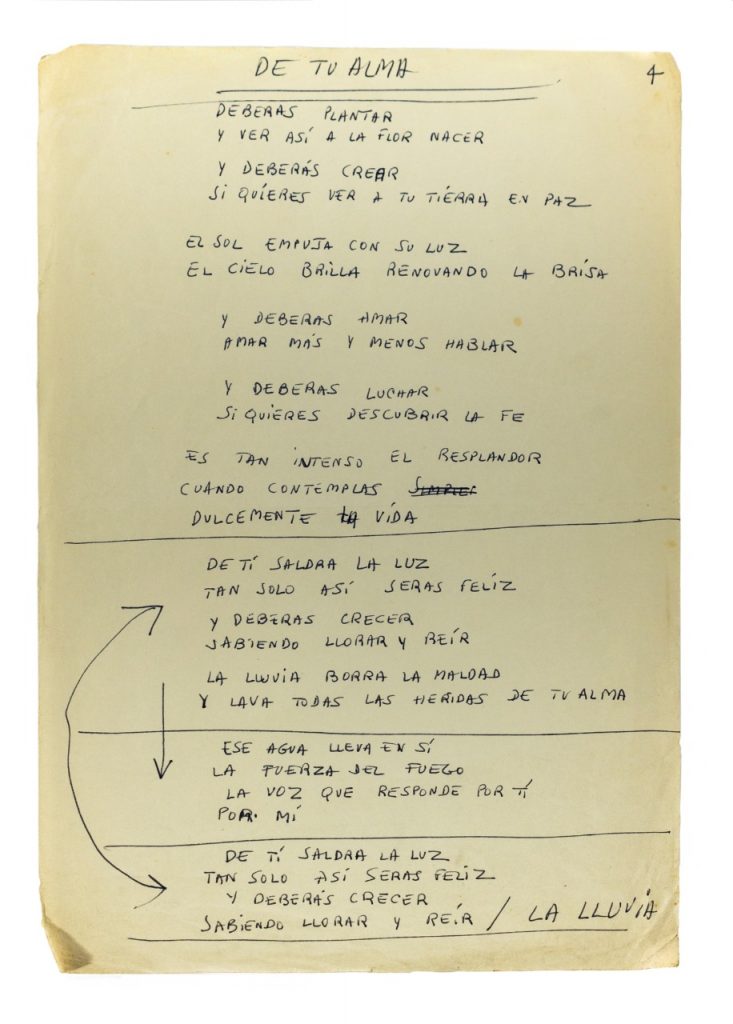 DE TU ALMA
4
DEBERAS PLANTAR
Y VER ASÍ A LA FLOR NACER
Y DEBERÁS CREAR
SI QUIERES VER A TU TIERRA EN PAZ
EL SOL EMPUJA CON SU LUZ
EL CIELO BRILLA RENOVANDO LA BRISA
Y DEBERAS AMAR
AMAR MÁS Y MENOS HABLAR
Y DEBERAS LUCHAR
SI QUIERES DESCUBRIR LA FE
ES TAN INTENSO EL RESPLANDOR
CUANDO CONTEMPLAS
DULCEMENTE LA VIDA
DE TÍ SALDRA LA LUZ
TAN SOLO ASÍ SERAS FELÍZ
Y DEBERAS CRECER
SABIENDO LLORAR Y REÍR
LA LLUVIA BORRA LA MALDAD
Y LAVA TODAS LAS HERIDAS DE TU ALMA
ESE AGUA LLEVA EN SÍ
LA FUERZA DEL FUEGO
LA VOZ QUE RESPONDE POR TÍ
POR MÍ
DE TÍ SALDRA LA LUZ
TAN SOLO ASÍ SERAS FELIZ
Y DEBERÁS CRECER
SABIENDO LLORAR Y REÍR / LA LLUVIA